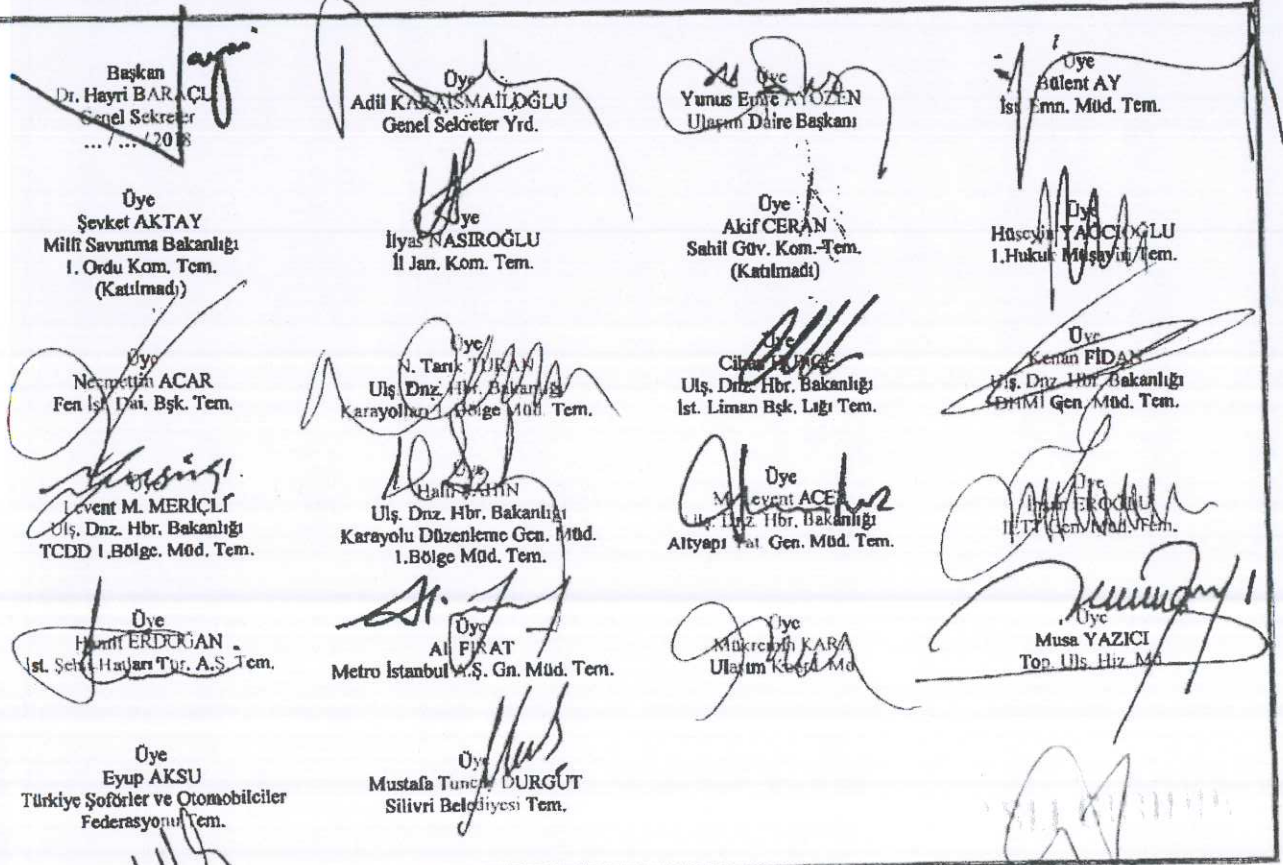 Başkan
Dr. Hayri BARAÇLI
Genel Sekreter
... / ... / 2018
Üye
Adil KARAİSMAİLOĞLU
Genel Sekreter Yrd.
Üye
Yunus Emre AYÖZEN
Ulaşım Daire Başkanı
Üye
Bülent AY
İst. Emn. Müd. Tem.
Üye
Şevket AKTAY
Millî Savunma Bakanlığı
1. Ordu Kom. Tem.
(Katılmadı)
Üye
İlyas NASIROĞLU
İl Jan. Kom. Tem.
Üye
Akif CERAN
Sahil Güv. Kom. Tem.
(Katılmadı)
Üye
Hüseyin YAĞCIOĞLU
1.Hukuk Müşaviri Tem.
Üye
Necmettin ACAR
Fen İşl. Dai. Bşk. Tem.
Üye
N. Tarık TURAN
Ulş. Dnz. Hbr. Bakanlığı
Karayolları 1. Bölge Müd. Tem.
Cihan
Ulş. Dnz. Hbr. Bakanlığı
İst. Liman Bşk. Lığı Tem.
Üye
Kenan FİDAN
Ulş. Dnz. Hbr. Bakanlığı
DHMİ Gen. Müd. Tem.
Levent M. MERİÇLİ
Ulş. Dnz. Hbr. Bakanlığı
TCDD 1.Bölge. Müd. Tem.
Üye
Halil ŞAHİN
Ulş. Dnz. Hbr. Bakanlığı
Karayolu Düzenleme Gen. Müd.
1.Bölge Müd. Tem.
Üye
M. Levent ACE
Ulş. Dnz. Hbr. Bakanlığı
Altyapı Yat. Gen. Müd. Tem.
Üye
EROĞLU
İETT Gen. Müd. Tem.
Üye
Hamit ERDOĞAN
İst. Şehir Hatları Tur. A.Ş. Tem.
Üye
Ali FIRAT
Metro İstanbul A.Ş. Gn. Müd. Tem.
Üye
Mükremin KARA
Ulaşım Koord. Md.
Üye
Musa YAZICI
Top. Uls. Hiz. Md
Üye
Eyup AKSU
Türkiye Şoförler ve Otomobilciler
Federasyonu Tem.
Üye
Mustafa Tuncay DURGUT
Silivri Belediyesi Tem.